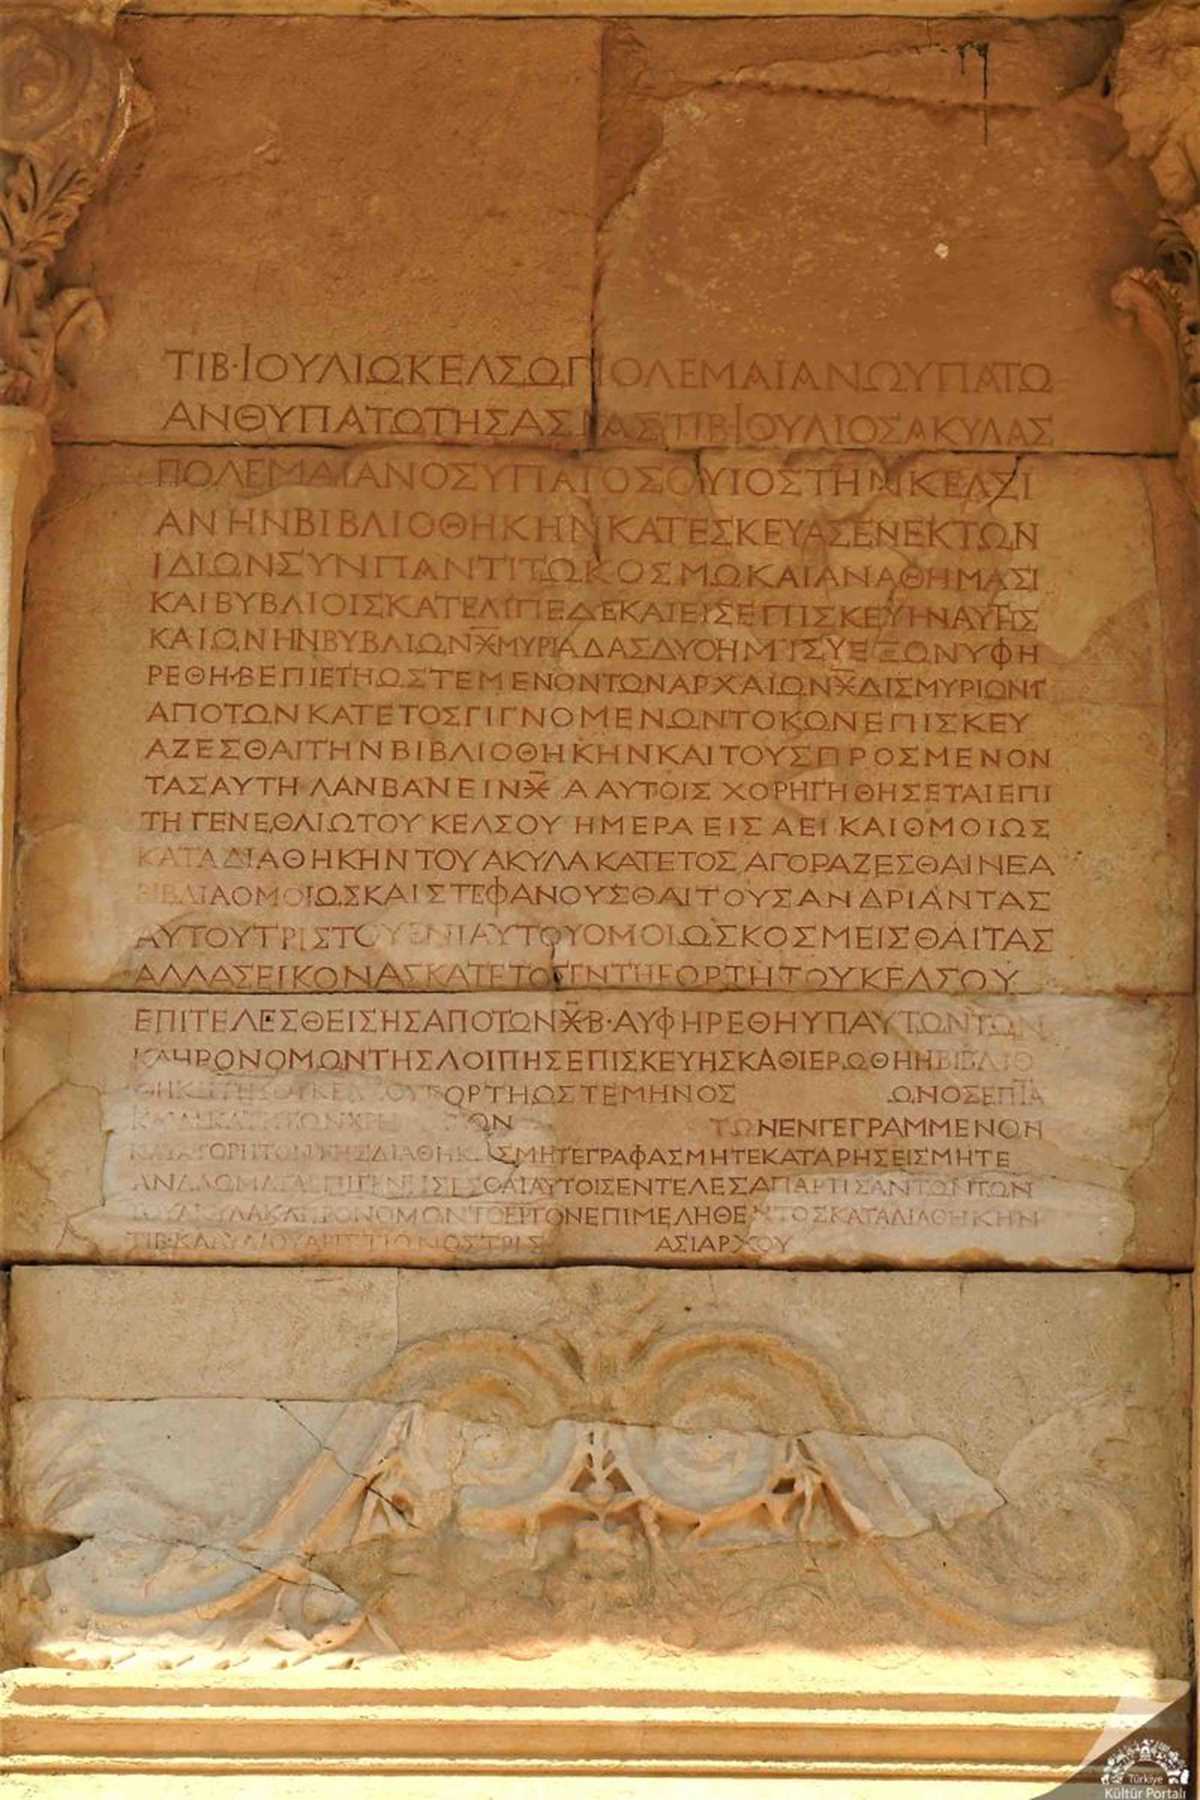 ΤΙΒ·ΙΟΥΛΙΩΚΕΛΣΩΠΟΛΕΜΑΙΑΝΩΥΠΑΤΩ
ΑΝΘΥΠΑΤΩΤΗΣΑΣΙΑΣΤΙΒΙΟΥΛΙΟΣΑΚΥΛΑΣ
ΠΟΛΕΜΑΙΑΝΟΣΥΠΑΤΟΣΟΥΙΟΣΤΗΝΚΕΛΣΙ
ΑΝΗΝΒΙΒΛΙΟΘΗΚΗΝΚΑΤΕΣΚΕΥΑΣΕΝΕΚΤΩΝ
ΙΔΙΩΝΣΥΝΠΑΝΤΙΤΩΚΟΣΜΩΚΑΙΑΝΑΘΗΜΑΣΙ
ΚΑΙΒΥΒΛΙΟΙΣΚΑΤΕΛΙΠΕΔΕΚΑΙΕΙΣΕΠΙΣΚΕΥΗΝΑΥΤΗΣ
ΚΑΙΩΝΗΝΒΥΒΛΙΩΝ Χ̅ ΜΥΡΙΑΔΑΣΔΥΟΗΜΙΣΥΕΞΩΝΥΦΗ
ΡΕΘΗ·ΒΕΠΙΕΤΗΩΣΤΕΜΕΝΟΝΤΩΝΑΡΧΑΙΩΝ Χ̅ ΔΙΣΜΥΡΙΩΝΓ
ΑΠΟΤΩΝΚΑΤΕΤΟΣΓΙΓΝΟΜΕΝΩΝΤΟΚΩΝΕΠΙΣΚΕΥ
ΑΖΕΣΘΑΙΤΗΝΒΙΒΛΙΟΘΗΚΗΝΚΑΙΤΟΥΣΠΡΟΣΜΕΝΟΝ
ΤΑΣΑΥΤΗΛΑΝΒΑΝΕΙΝ Χ̅ ΑΑΥΤΟΙΣΧΟΡΗΓΗΘΗΣΕΤΑΙΕΠΙ
ΤΗΓΕΝΕΘΛΙΩΤΟΥΚΕΛΣΟΥΗΜΕΡΑΕΙΣΑΕΙΚΑΙΘΜΟΙΩΣ
ΚΑΤΑΔΙΑΘΗΚΗΝΤΟΥΑΚΥΛΑΚΑΤΕΤΟΣΑΓΟΡΑΖΕΣΘΑΙΝΕΑ
ΒΙΒΛΙΑΟΜΟΙΩΣΚΑΙΣΤΕΦΑΝΟΥΣΘΑΙΤΟΥΣΑΝΔΡΙΑΝΤΑΣ
ΑΥΤΟΥΤΡΙΣΤΟΥΕΝΙΑΥΤΟΥΟΜΟΙΩΣΚΟΣΜΕΙΣΘΑΙΤΑΣ
ΑΛΛΑΣΕΙΚΟΝΑΣΚΑΤΕΤΟΣΕΝΤΗΕΟΡΤΗΤΟΥΚΕΛΣΟΥ
ΕΠΙΤΕΛΕΣΘΕΙΣΗΣΑΠΟΤΩΝ Χ̅ Β·ΑΥΦΗΡΕΘΗΥΠΑΥΤΩΝΤΩΝ
ΚΛΗΡΟΝΟΜΩΝΤΗΣΛΟΙΠΗΣΕΠΙΣΚΕΥΗΣΚΑΘΙΕΡΩΘΗΗΒΙΒΛΙΟ
ΟΡΤΗΩΣΤΕΜΗΝΟΣ ΩΝΟΣΕΠΙΑ
ΩΝ ΤΩΝΕΝΓΕΓΡΑΜΜΕΝΩΝ
ΤΗΣΔΙΑΘΗΚΗΣΜΗΤΕΓΡΑΦΑΣΜΗΤΕΚΑΤΑΡΗΣΕΙΣΜΗΤΕ
ΑΝΑΛΩΜΑΤΑΕΠΙΓΕΝΕΙΣΕΣΘΑΙΑΥΤΟΙΣΕΝΤΕΛΕΣΑΠΑΡΤΙΣΑΝΤΩΝΤΩΝ
ΤΟΥΑΚΥΛΑΚΛΗΡΟΝΟΜΩΝΤΟΕΡΓΟΝΕΠΙΜΕΛΗΘΕΝΤΟΣΚΑΤΑΔΙΑΘΗΚΗΝ
ΤΙΒ·ΚΛΑΥΔΙΟΥΑΡΙΣΤΙΩΝΟΣΤΡΙΣ ΑΣΙΑΡΧΟΥ
Türkiye
Kültür Portalı